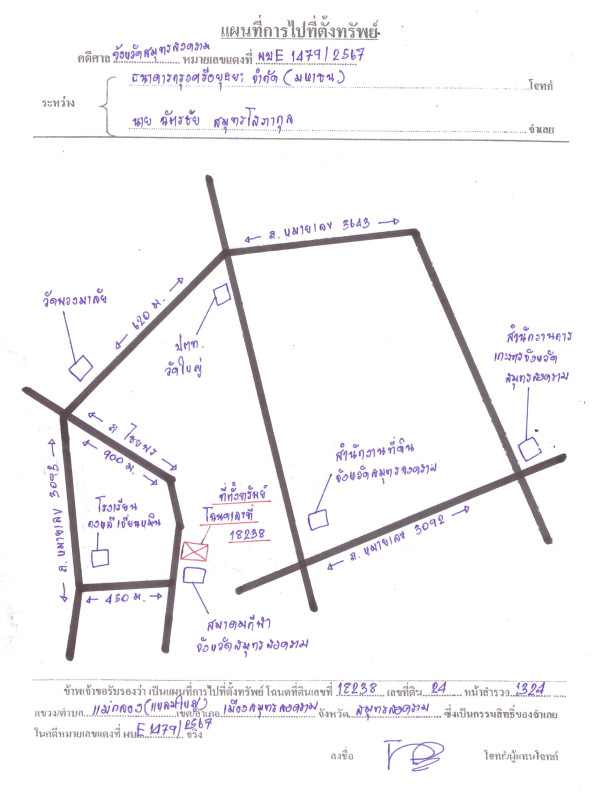 แผนที่การไปที่ตั้งทรัพย์
คดีศาล จังหวัดสมุทรสงคราม หมายเลขแดงที่ ผบE 1479/2567
ธนาคารกรุงศรีอยุธยา จำกัด (มหาชน) โจทก์
ระหว่าง
นาย ฉัตรชัย สมุทรโสภากุล จำเลย
ถ. หมายเลข 3643
วัดพวงมาลัย
620 ม.
ปตท.
วัดใหญ่
สำนักงานการ
เกษตรจังหวัด
สมุทรสงคราม
900 ม.
ถ. หมายเลข 3093
ที่ตั้งทรัพย์
โฉนดเลขที่
18238
สำนักงานที่ดิน
จังหวัดสมุทรสงคราม
โรงเรียน
ถ. หมายเลข 3092
450 ม.
สมาคมกีฬา
จังหวัดสมุทรสงคราม
ข้าพเจ้าขอรับรองว่า เป็นแผนที่การไปที่ตั้งทรัพย์ โฉนดที่ดินเลขที่ 18238 เลขที่ดิน 24 หน้าสำรวจ 1324
แขวง/ตำบล แม่กลอง(แหลมใหญ่) เขต/อำเภอ เมืองสมุทรสงคราม จังหวัด สมุทรสงคราม ซึ่งเป็นกรรมสิทธิ์ของจำเลย
ในคดีหมายเลขแดงที่ ผบE 1479/2567 จริง
ลงชื่อ โจทก์/ผู้แทนโจทก์